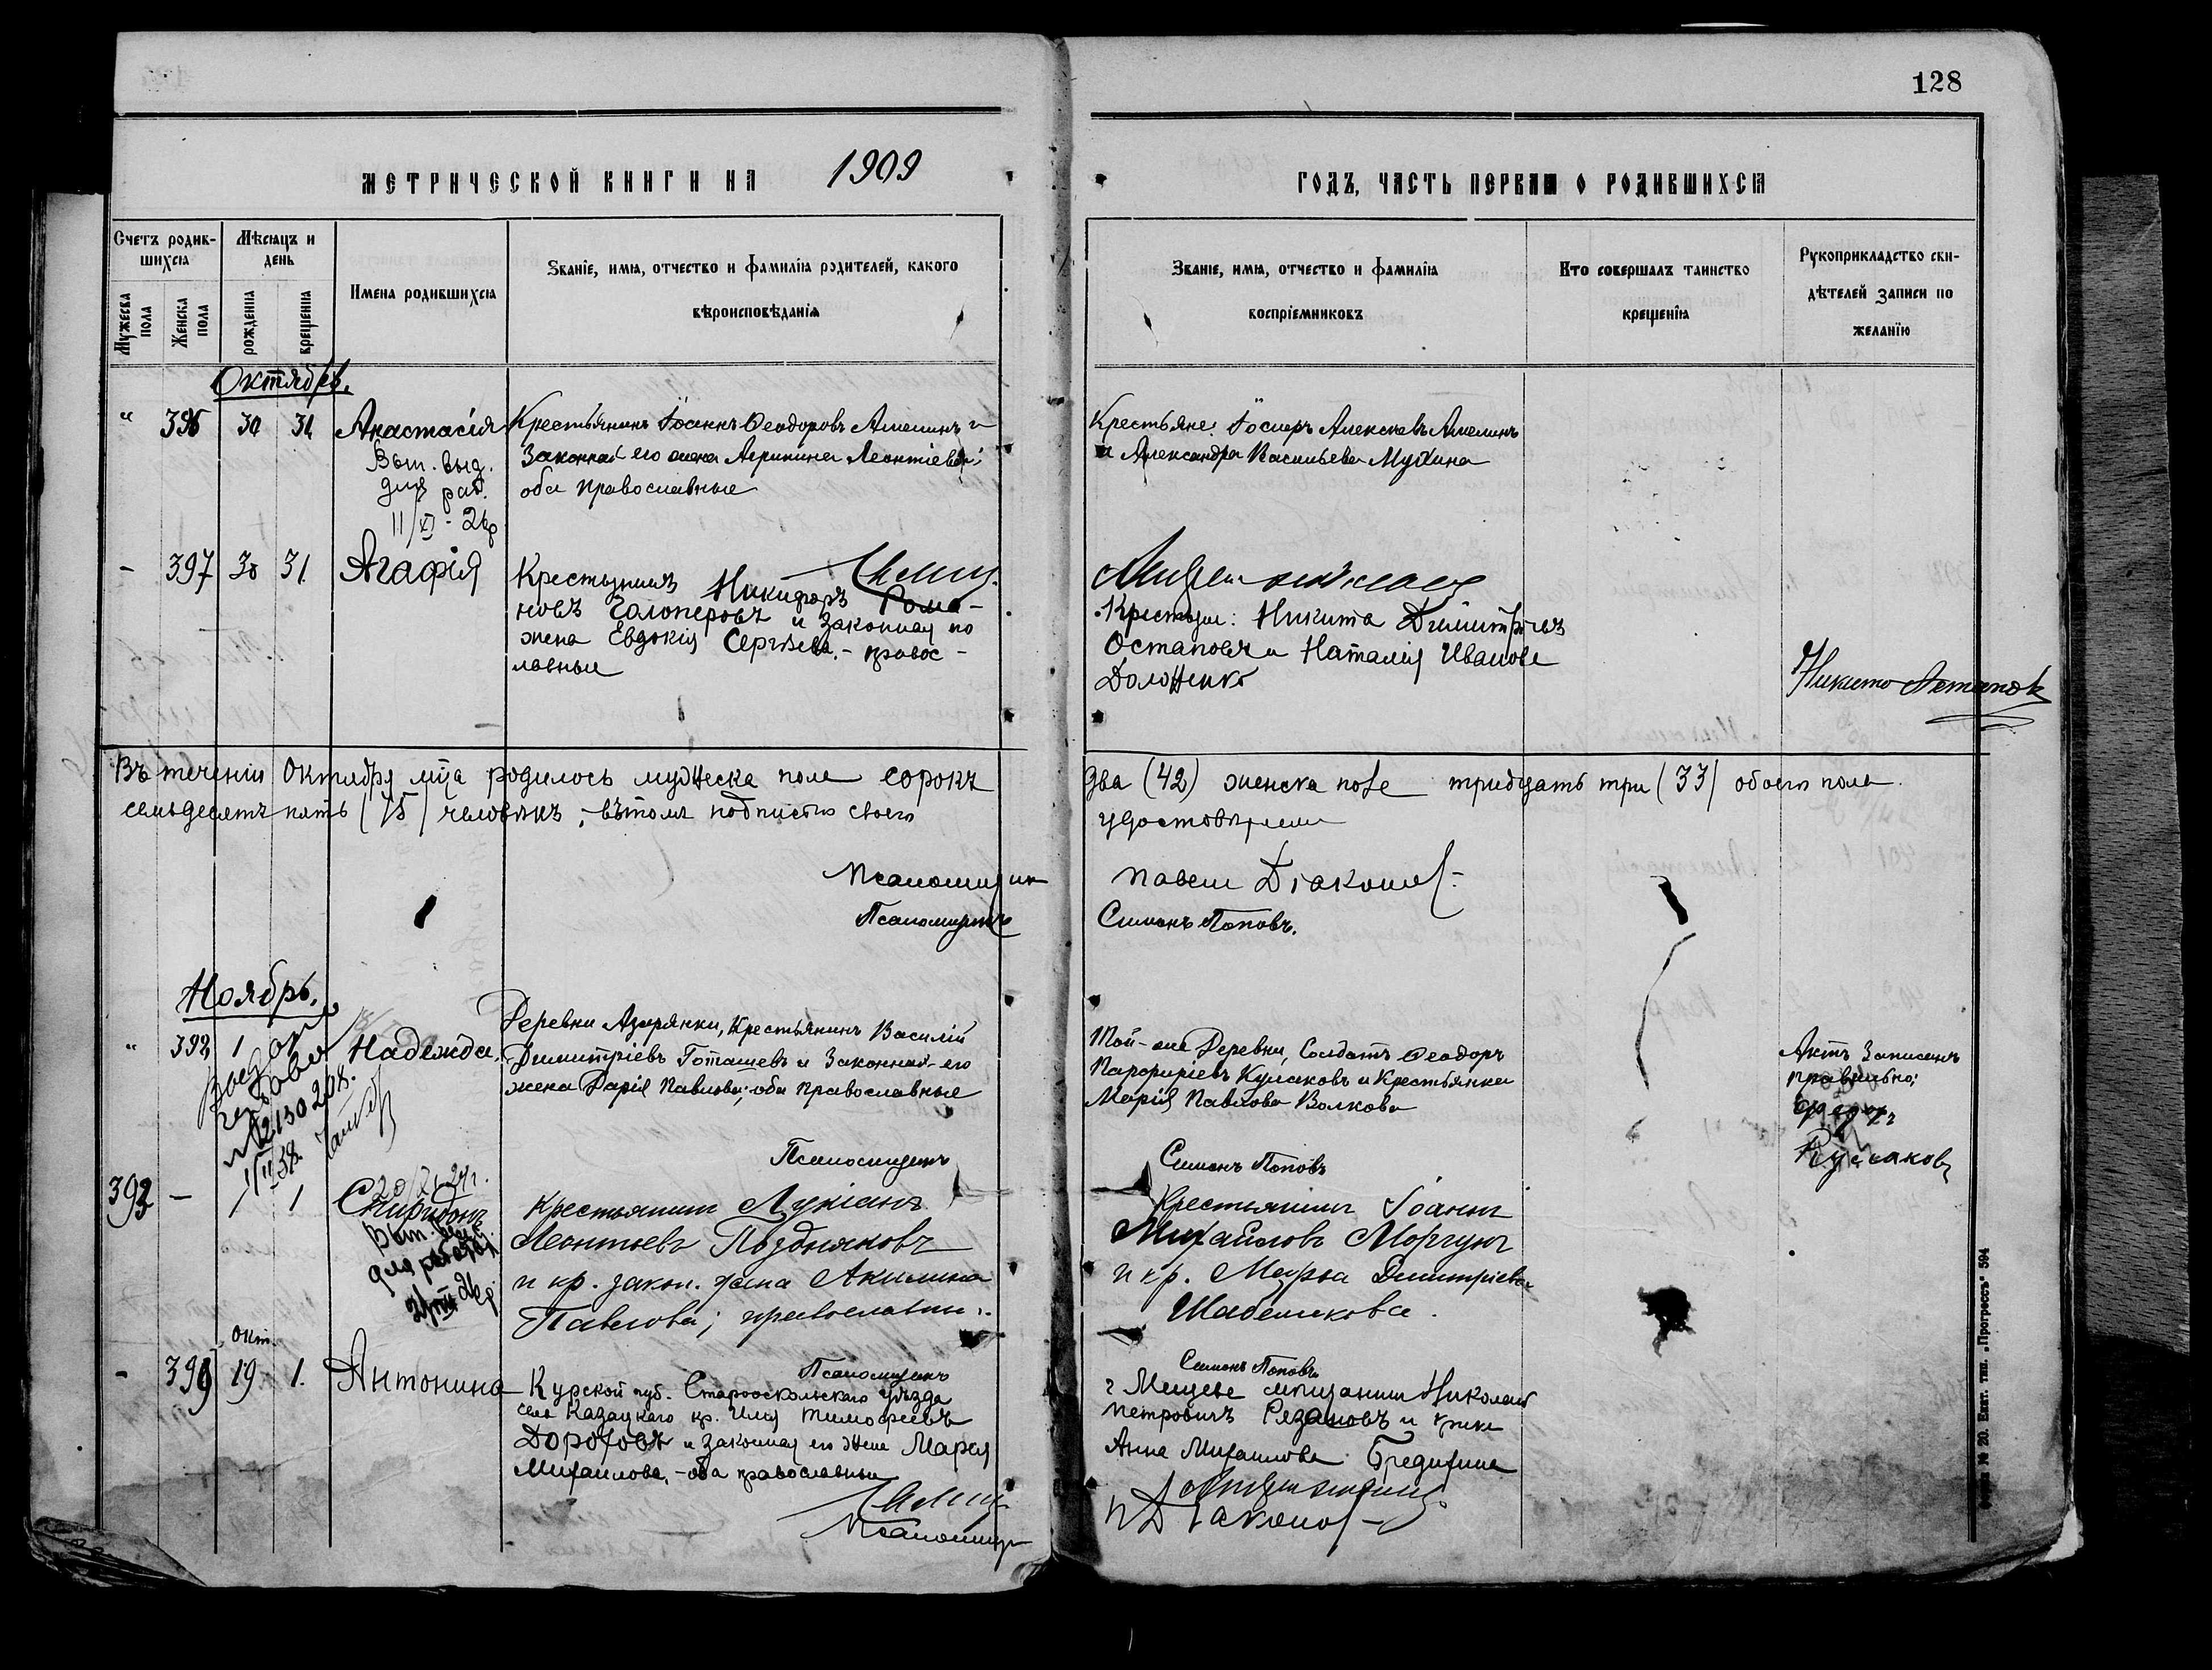 128
МЕТРИЧЕСКОЙ КНИГИ НА 1909
ГОДЪ, ЧАСТЬ ПЕРВАЯ О РОДИВШИХСЯ
Счетъ родившихся
Мужеска пола
Женска пола
Мѣсяцъ и день
рожденія
крещенія
Имена родившихся
Званіе, имя, отчество и фамилія родителей, какого
вѣроисповѣданія
Званіе, имя, отчество и фамилія
воспріемниковъ
Кто совершалъ таинство
крещенія
Рукоприкладство сви-
дѣтелей записи по
желанію
Октябрь.
" 396 30 31 Анастасія
Вып. выд.
для раб.
11/XI-26р
Крестьянинъ Іоаннъ Ѳеодоровъ Амелинъ и
Законная его жена Агрипина Леонтіева;
оба православные
Крестьяне: Іосифъ Алексѣевъ Амелинъ
и Александра Васильева Мухина
- 397 30 31. Агафія
Крестьянинъ Никифоръ Рома-
новъ Голоперовъ и законная его
жена Евдокія Сергѣева.- правос-
лавные
Крестьяне: Никита Димитріевъ
Остаповъ и Наталія Иванова
Долженко
Никита Остапов
Въ теченіи Октября мѣсяца родилось мужеска пола сорокъ
два (42) женска пола тридцать три (33) обоего пола
семьдесятъ пять (75) человѣкъ; въ томъ подписью своею
удостовѣряемъ
Псаломщик Павелъ Діаконов-
Псаломщикъ Симонъ Поповъ.
Ноябрь.
" 398 1 Надежда.
№2130208.
Деревни Азарянки, Крестьянинъ Василій
Димитріевъ Готашевъ и Законная-его
жена Дарія Павлова; оба православные
Той-же Деревни, Солдатъ Ѳеодоръ
Парфиріевъ Кулаковъ и Крестьянка
Марія Павлова Волкова
Актъ записанъ
правильно;
Псаломщикъ Симонъ Поповъ
393 - 1 1 Спиридонъ
Вып. выд.
для работы
Крестьянинъ Лукіанъ
Леонтьевъ Поздняковъ
и кр. закон. жена Акилина
Павлова; православны.
Крестьянинъ Іоаннъ
Михайловъ Моргунъ
и кр. Марѳа Димитріева
Шабельникова.
Псаломщикъ Симонъ Поповъ
окт.
- 399 19 1. Антонина
Курской губ. Старооскольскаго уѣзда
села Казацкаго кр. Илья Тимофеевъ
Дорофовъ и законная его жена Марія
Михаилова,-оба православные
Мещанинъ Николай
Петровичъ Рязановъ и
Анна Михаилова Бредихина
Псаломщик П Діаконов-
Форма № 20. Екат. тип. „Прогрессъ" 594